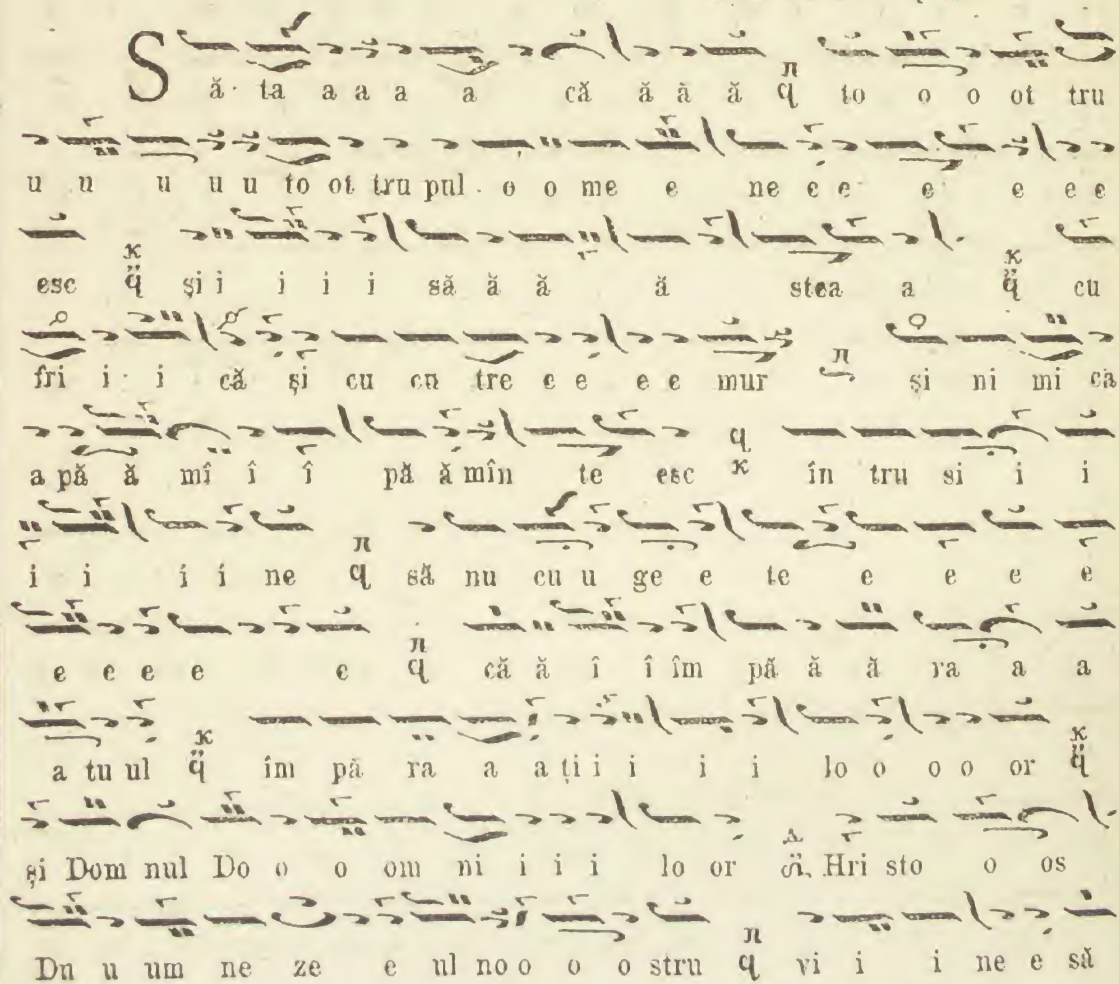 Să ta a a a a că ă ă ă π q to o o ot tru
u u u u u to ot tru pul o o me e ne e e e e e e
esc ϰ q̈ și i i i i să ă ă ă stea a ϰ q̈ cu
fri i i că și cu cu tre e e e e mur π și ni mi ca
a pă ă mî î î pă ă mîn te esc q ϰ în tru si i i
i i í í ne π q să nu cu u ge e te e e e e
e e e e e π q că ă î î îm pă ă ă ra a a
a tu ul ϰ q̈ îm pă ra a a ți i i i i lo o o o or ϰ q̈
și Dom nul Do o o om ni i i i lo or Δ Hri sto o os
Du u um ne ze e ul no o o o stru π q vi i i ne e să